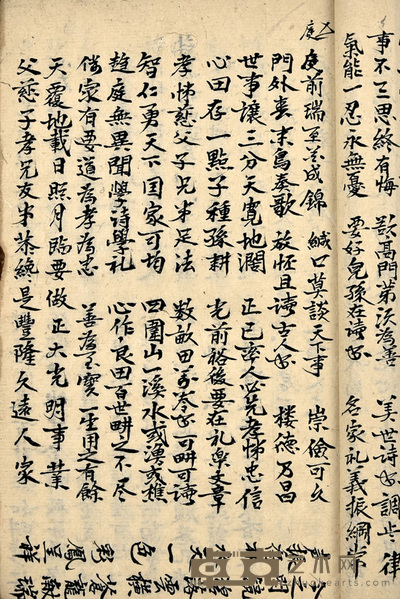 事不三思終有悔 欲高門第須為善 美世詩書調半律
氣能一忍永無憂 要好兒孫在讀書 名家礼義振綱常
庭
庭前瑞草花成錦 緘口莫談天下事 崇儉可久
門外喜禾鳥奏歌 放怀且讀古人書 樓德乃昌
世事讓三分天寬地濶 正已率人必先孝悌忠信
心田存一點子種孫耕 光前裕後要在礼樂文章
孝悌慈父子兄弟足法 数畝田萬卷書可畊可讀
智仁勇天下国家可均 四圍山一溪水或漁或樵
趨庭無異聞學詩學礼 心作良田百世畊之不尽
傳家有要道為孝為忠 善為至寶一生用之有餘
天覆地載日照月臨要做正大光明事業
父慈子孝兄友弟恭終是豐隆久遠人家